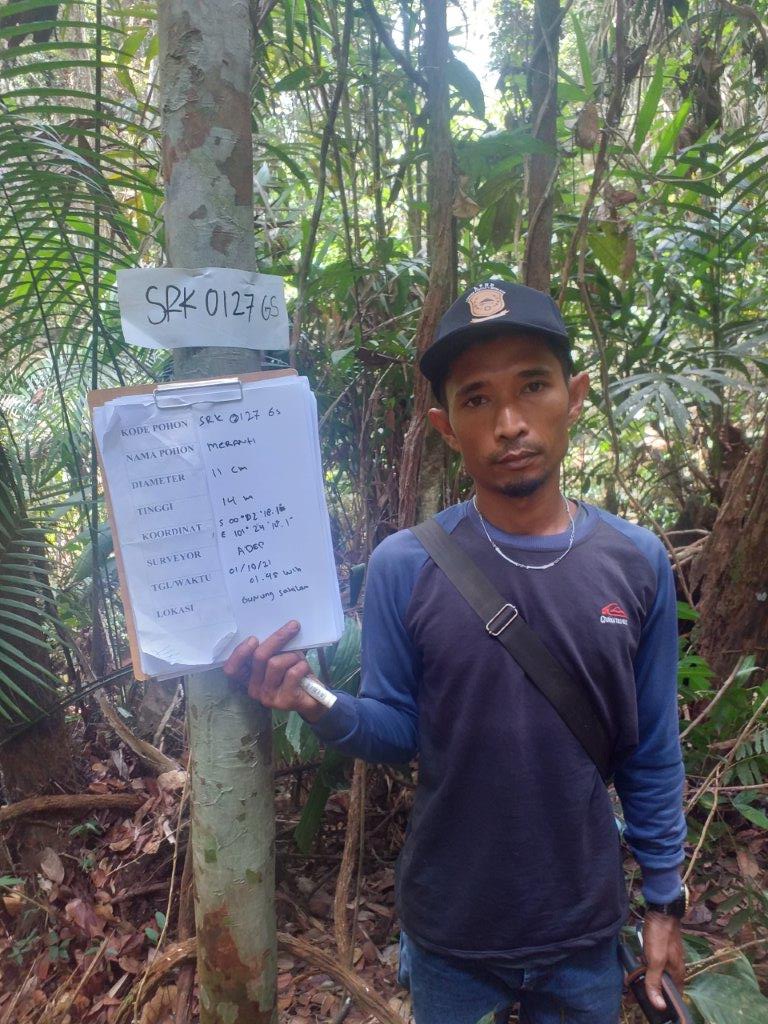 SRK 0127 GS
KODE POHON SRK 0127 GS
NAMA POHON MERANTI
DIAMETER 11 cm
TINGGI 14 m
KOORDINAT S 00° 02' 18.18
E 101° 24' 18.1"
SURVEYOR ADEP
TGL/WAKTU 01/10/21
01.45 WIB
LOKASI